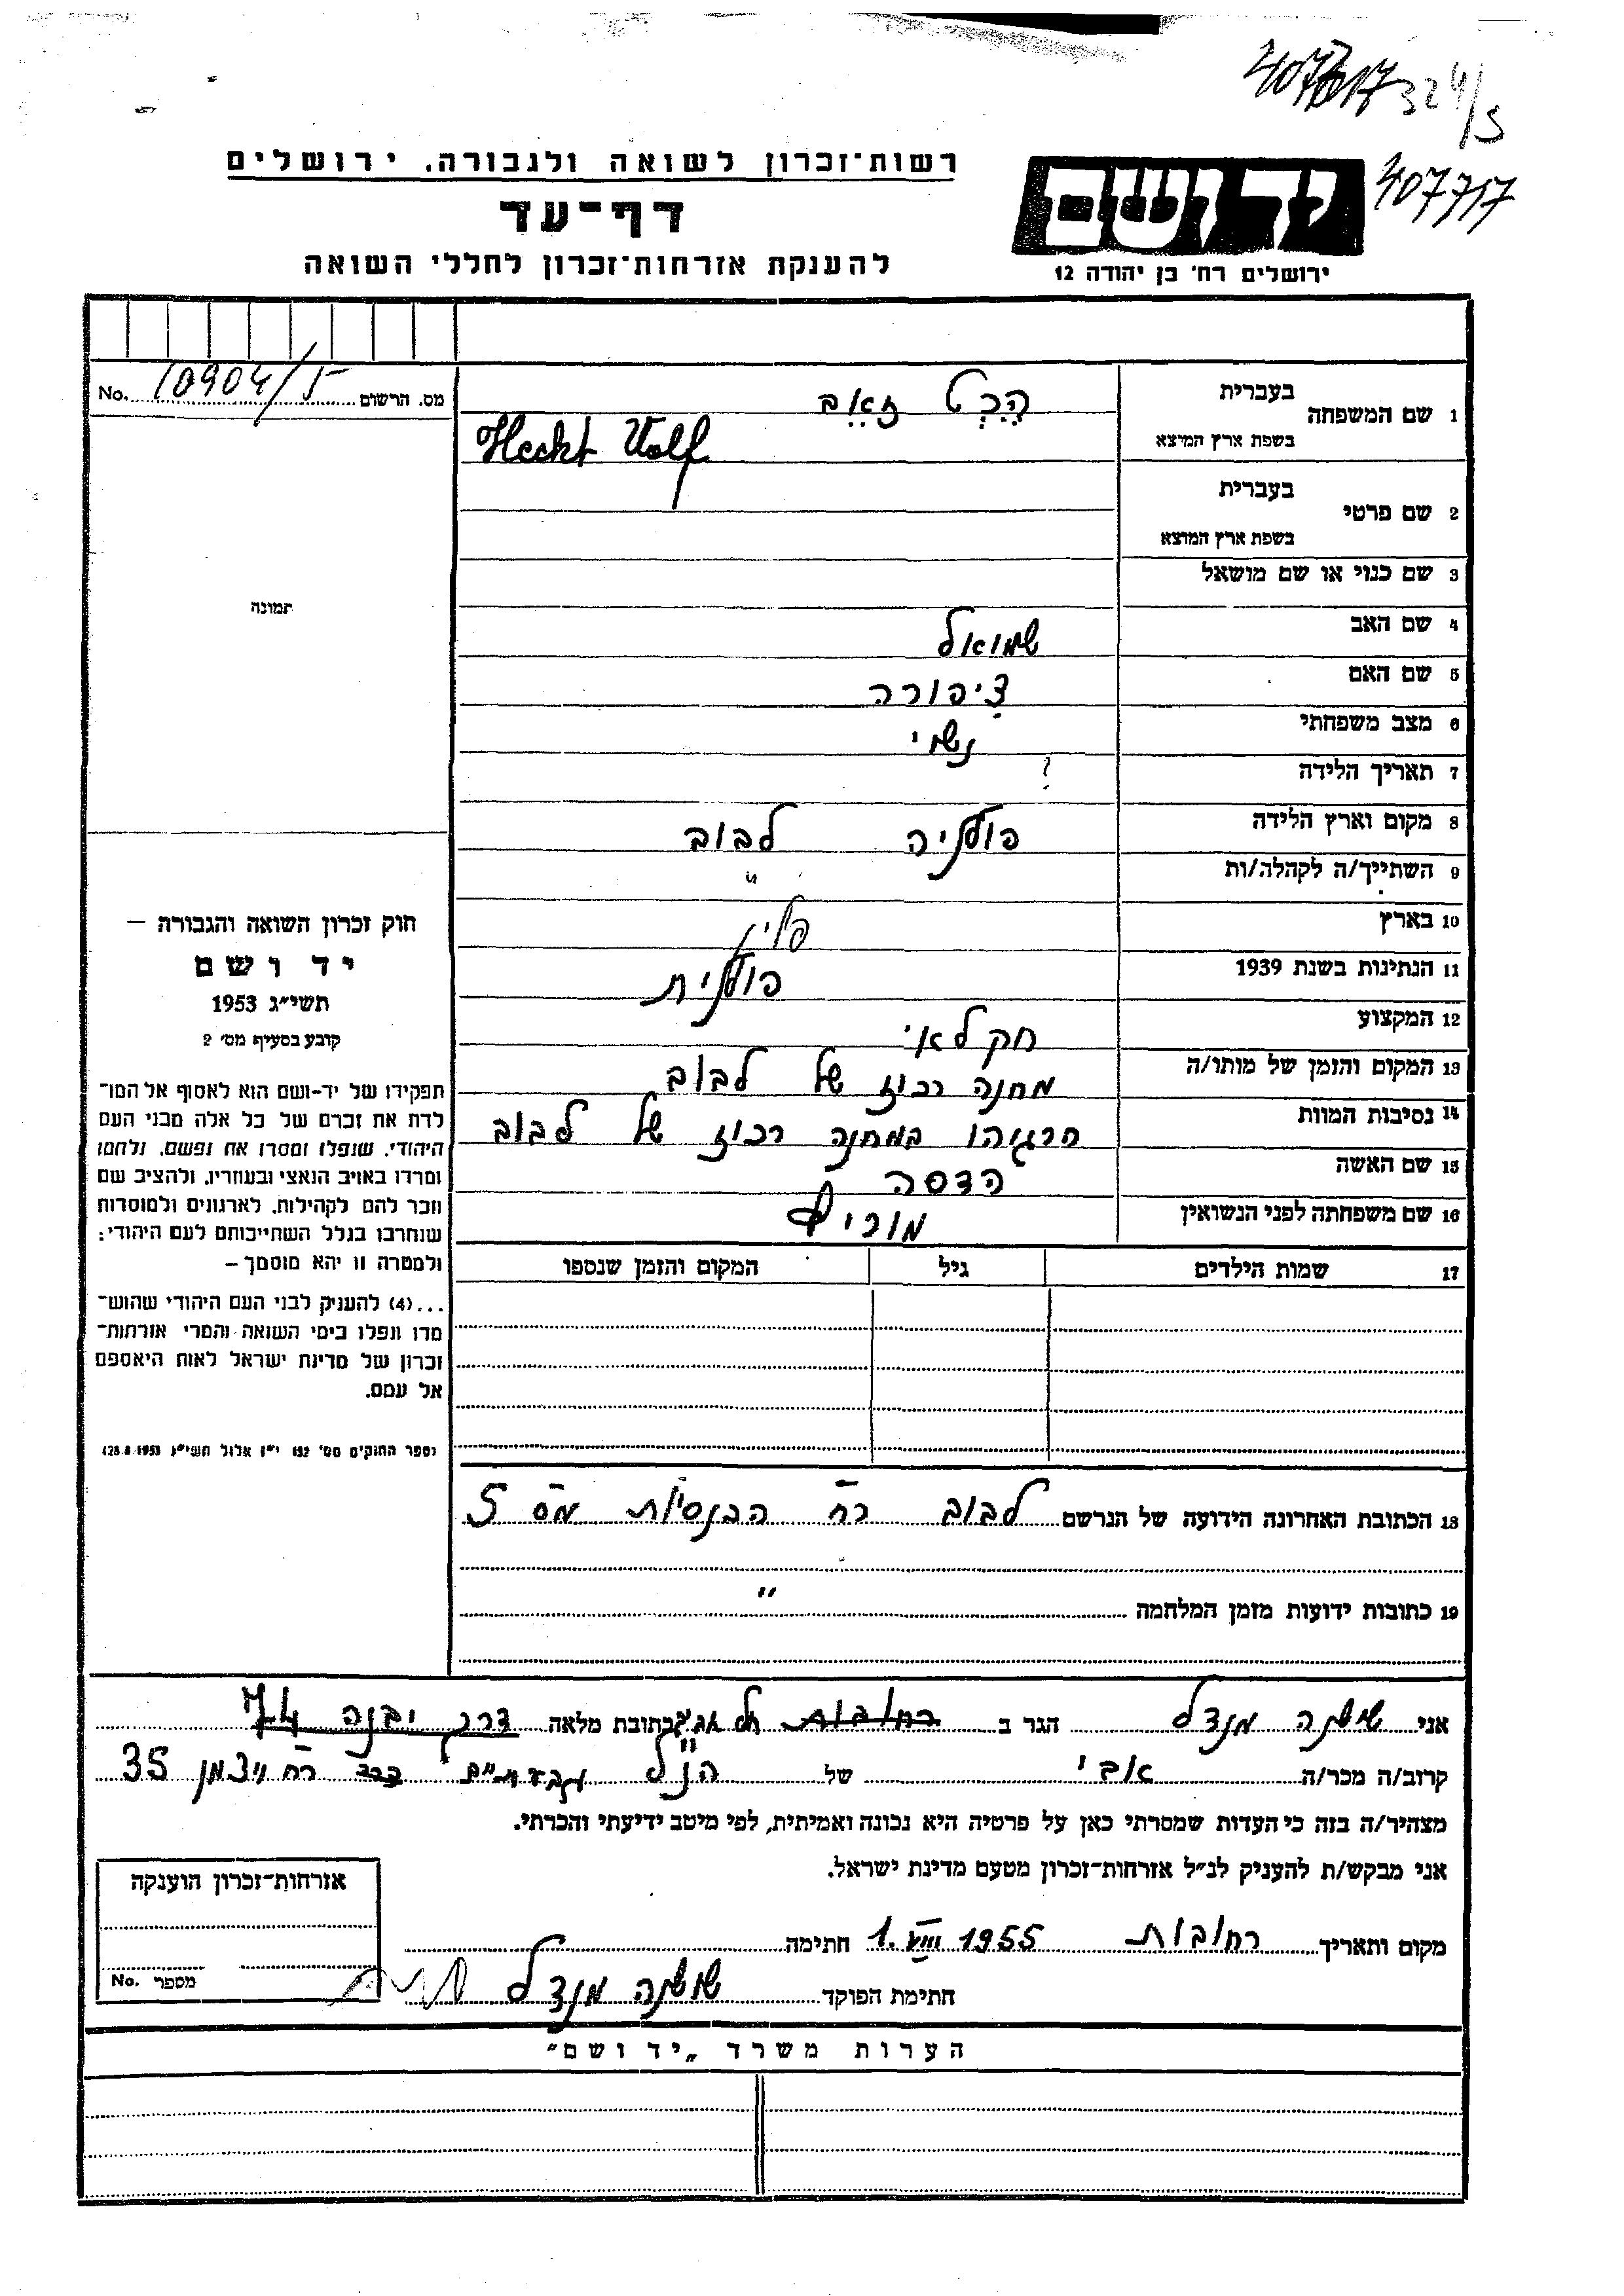 407617 324/5
407717
רשות־זכרון לשואה ולגבורה, ירושלים
דף־עד
להענקת אזרחות־זכרון לחללי השואה
יד ושם
ירושלים רח' בן יהודה 12
מס. הרשום 10904/5 No.
1 שם המשפחה
בעברית הֶכְט זאב
בשפת ארץ המוצא Heckt Wolf
2 שם פרטי
בעברית
בשפת ארץ המוצא
3 שם כנוי או שם מושאל
4 שם האב שמואל
5 שם האם ציפורה
6 מצב משפחתי נשוי
7 תאריך הלידה ?
8 מקום וארץ הלידה פולניה לבוב
9 השתייך/ה לקהלה/ות "
10 בארץ פולין
11 הנתינות בשנת 1939 פולנית
12 המקצוע חקלאי
13 המקום והזמן של מותו/ה מחנה רכוז של לבוב
14 נסיבות המוות הרגוהו במחנה רכוז של לבוב
15 שם האשה הדסה
16 שם משפחתה לפני הנשואין
17 שמות הילדים גיל המקום והזמן שנספו
תמונה
חוק זכרון השואה והגבורה –
יד ושם
תשי"ג 1953
קובע בסעיף מס' 2
תפקידו של יד-ושם הוא לאסוף אל המו־
לדת את זכרם של כל אלה מבני העם
היהודי, שנפלו ומסרו את נפשם, נלחמו
ומרדו באויב הנאצי ובעוזריו, ולהציב שם
וזכר להם לקהילות, לארגונים ולמוסדות
שנחרבו בגלל השתייכותם לעם היהודי:
ולמטרה זו יהא מוסמך –
...(4) להעניק לבני העם היהודי שהוש־
מדו ונפלו בימי השואה והמרי אזרחות־
זכרון של מדינת ישראל לאות היאספם
אל עמם.
(ספר החוקים מס' 132 י"ז אלול תשי"ג 28.8.1953)
18 הכתובת האחרונה הידועה של הנרשם לבוב רח הבנסיות מס 5
19 כתובות ידועות מזמן המלחמה "
אני שושנה מנדל הגר ב רחובות תל אביב כתובת מלאה דרך יבנה 74
קרוב/ה מכר/ה אבי של הנ"ל גבעתיים רח ויצמן 35
מצהיר/ה בזה כי העדות שמסרתי כאן על פרטיה היא נכונה ואמיתית, לפי מיטב ידיעתי והכרתי.
אני מבקש/ת להעניק לנ"ל אזרחות-זכרון מטעם מדינת ישראל.
מקום ותאריך רחובות 1. VIII 1955 חתימה
חתימת הפוקד שושנה מנדל
אזרחות-זכרון הוענקה
מספר No.
הערות משרד „יד ושם"